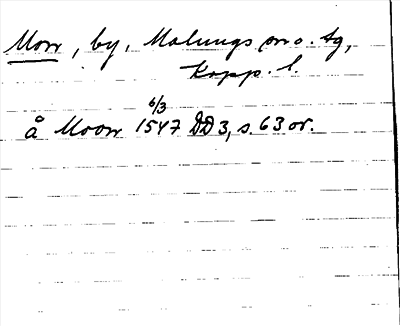 Morr, by, Malungs sn o. tg,
Kopp. l.
å Moorr 1547 6/3 DD 3, s. 63 or.